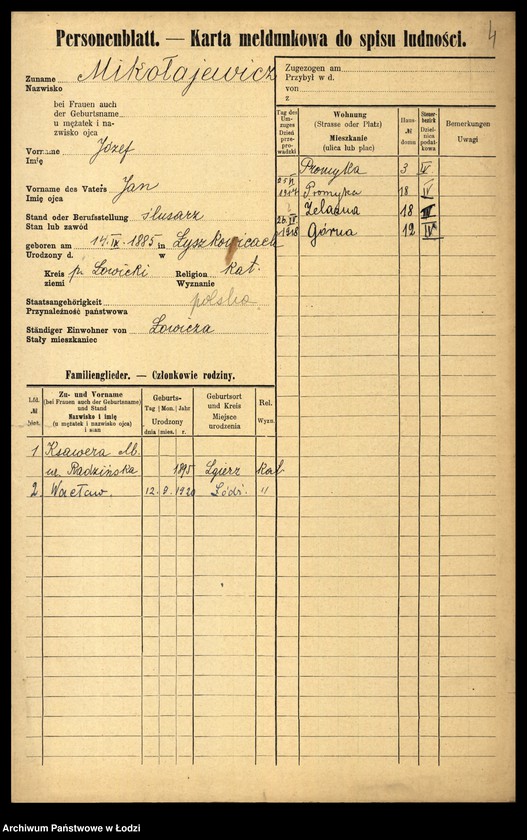 4
Personenblatt. — Karta meldunkowa do spisu ludności.
Zuname Mikołajewicz
Nazwisko
bei Frauen auch
der Geburtsname
u mężatek i na-
zwisko ojca
Vorname Józef
Imię
Vorname des Vaters Jan
Imię ojca
Stand oder Berufsstellung ślusarz
Stan lub zawód
geboren am 14.IX.1885 in Łyszkowicach
Urodzony d. w
Kreis p. Łowicki Religion kat.
ziemi Wyznanie
Staatsangehörigkeit polska
Przynależność państwowa
Ständiger Einwohner von Łowicza
Stały mieszkaniec
Zugezogen am
Przybył w d.
von
z
Tag des Um-zuges Dzień przeprowadzki
Wohnung (Strasse oder Platz) Mieszkanie (ulica lub plac)
Haus-№ domu
Steuer-bezirk Dzielnica podatkowa
Bemerkungen Uwagi
Promyka 3 IV
1917 Promyka 18 IV
Żelazna 18 IV
1918 Górna 12 IV
Familienglieder. — Członkowie rodziny.
Lfd. №
Zu- und Vorname
(bei Frauen auch der Geburtsname)
und Stand
Nazwisko i imię
(u mężatek i nazwisko ojca)
i stan
Geburts-
Tag Mon. Jahr
Urodzony
dnia mies. r.
Geburtsort
und Kreis
Miejsce
urodzenia
Rel.
Wyzn.
1 Ksawera M.
ur. Radzińska 1895 Zgierz kat
2. Wacław. 12. 9. 1920 Łódź. "
Archiwum Państwowe w Łodzi